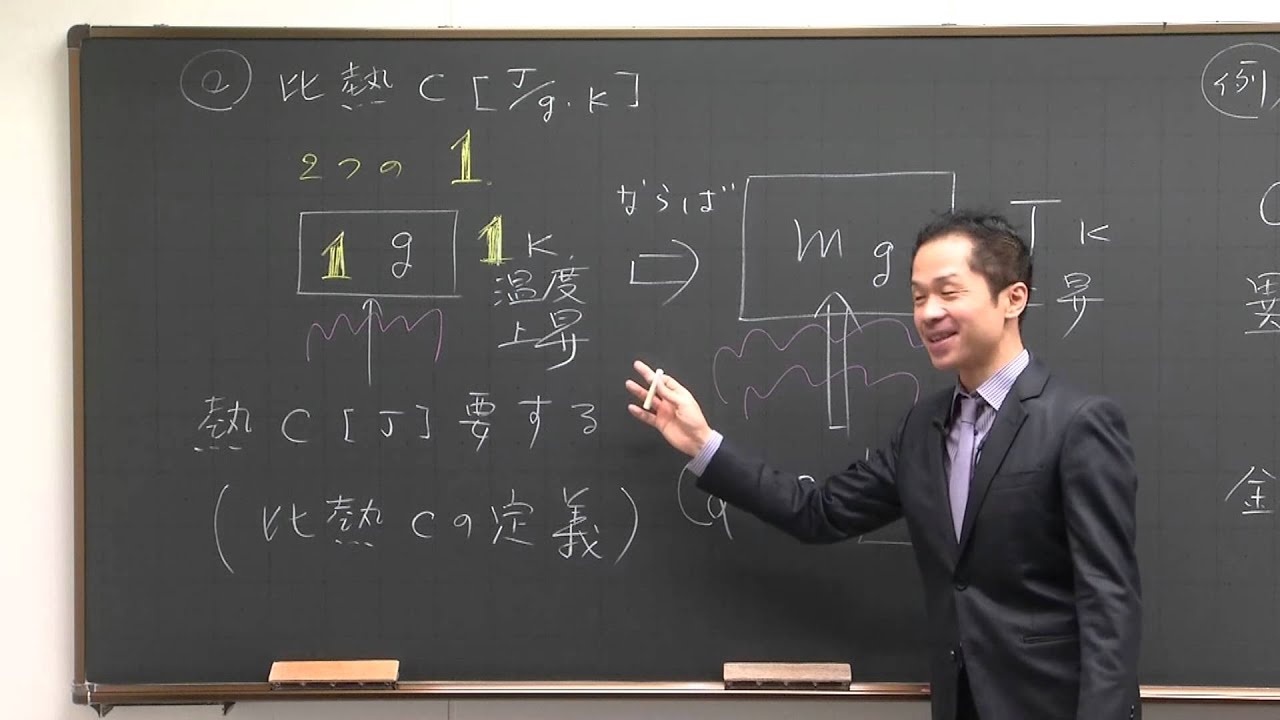 a 比熱 C [J/g・K]
2つの 1
1 g 1 K
温度
上昇
熱 C [J] 要する
(比熱 Cの定義)
ならば
m g
T K
昇
例
異
金